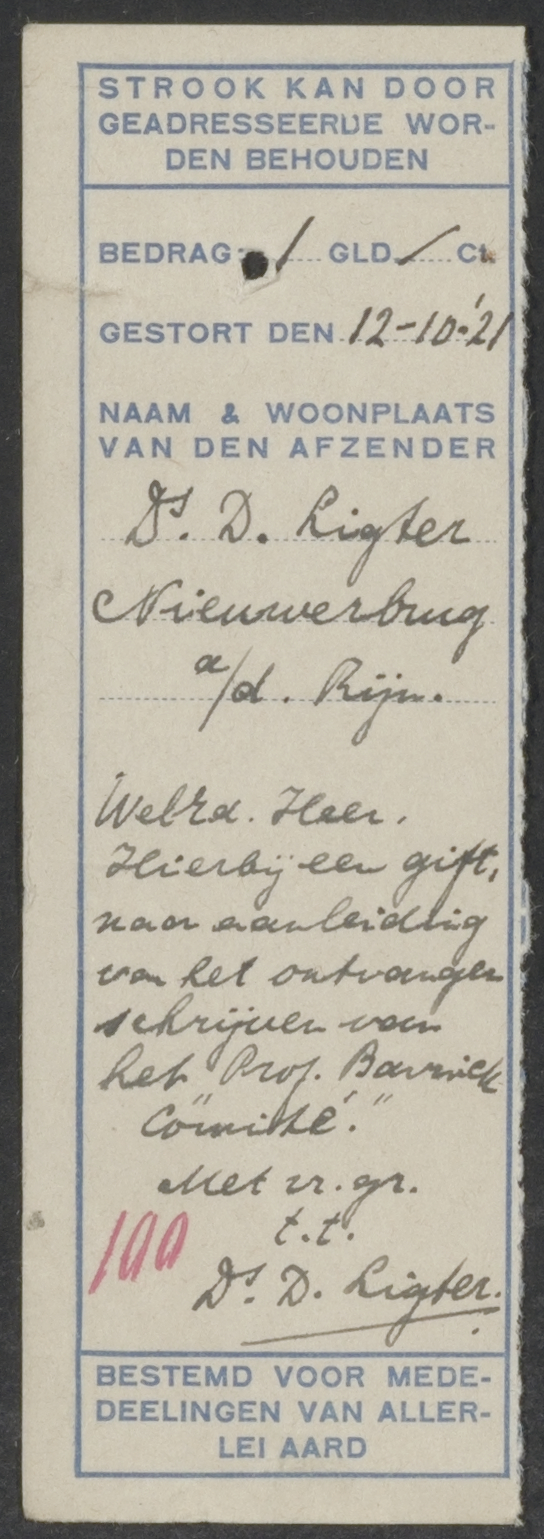 STROOK KAN DOOR
GEADRESSEERDE WOR-
DEN BEHOUDEN
BEDRAG: 1 GLD. / Ct.
GESTORT DEN 12-10-'21
NAAM & WOONPLAATS
VAN DEN AFZENDER
Ds. D. Ligter
Nieuwerbrug
a/d. Rijn.
WelEd. Heer.
Hierbij een gift,
naar aanleiding
van het ontvangen
schrijven van
het Prof. Bavinck
Comité."
Met vr. gr.
t.t.
100
Ds. D. Ligter.
BESTEMD VOOR MEDE-
DEELINGEN VAN ALLER-
LEI AARD